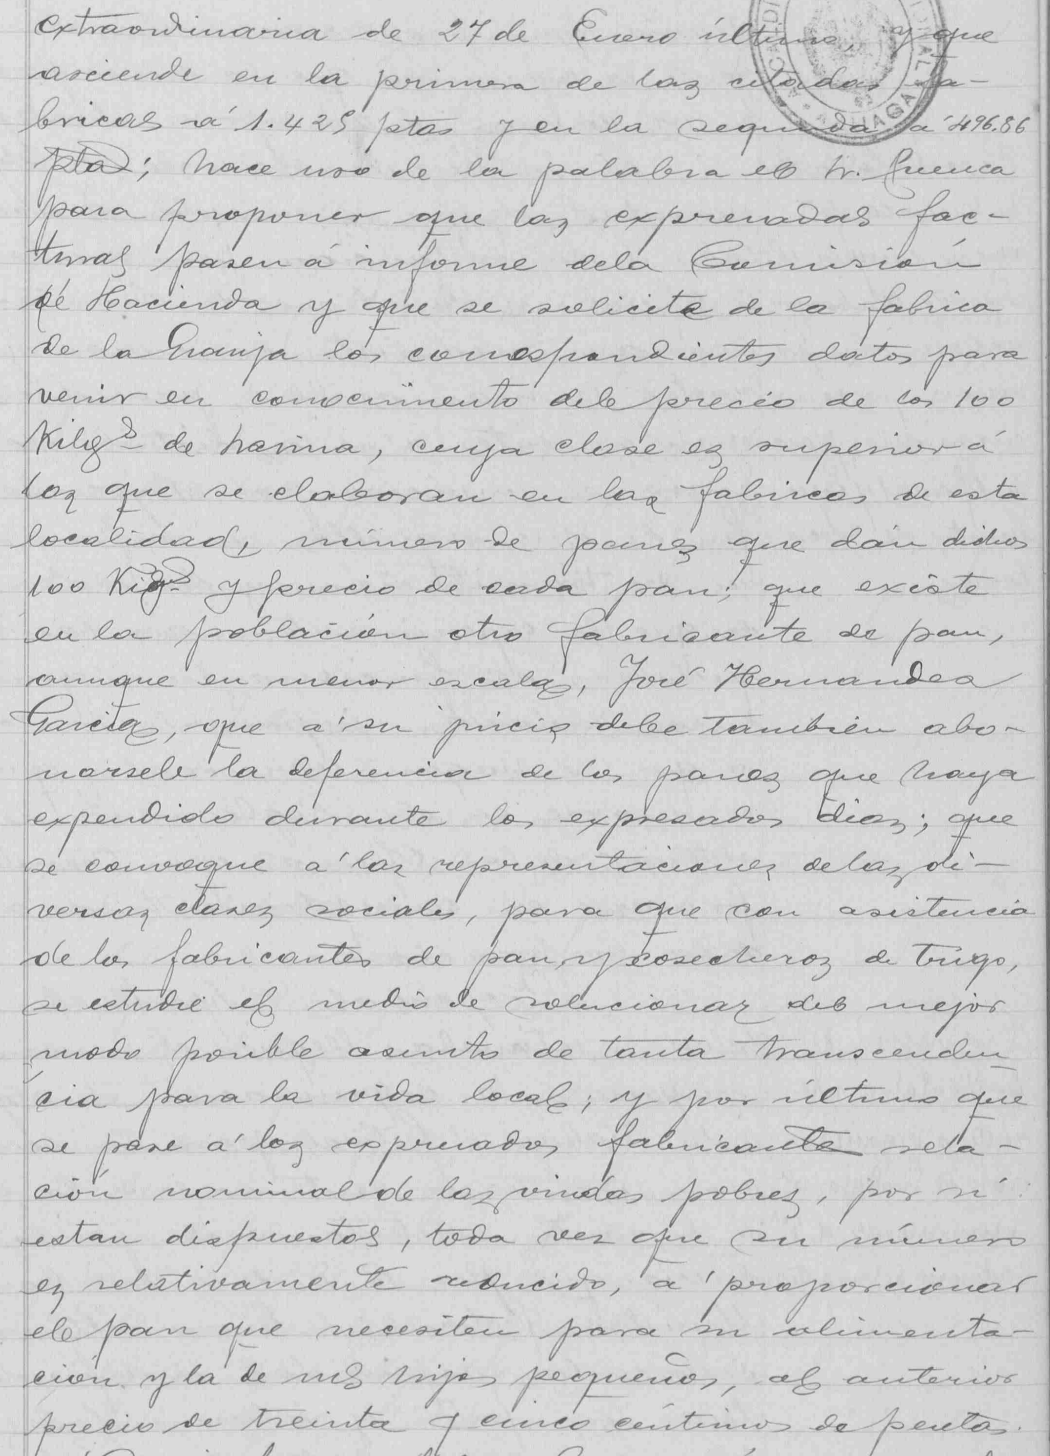 extraordinaria de 27 de Enero último, y que
asciende en la primera de las citadas fa-
bricas á 1.425 ptas y en la segunda á 496.86
ptas; hace uso de la palabra el Sr. Cuenca
para proponer que las expresadas fac-
turas pasen á informe de la Comisión
de Hacienda y que se solicite de la fabrica
de la Granja los correspondientes datos para
venir en conocimiento del precio de los 100
Kilgs de harina, cuya clase es superior á
las que se elaboran en las fabricas de esta
localidad, número de panes que dán dichos
100 Kigs y precio de cada pan; que existe
en la población otro fabricante de pan,
aunque en menor escala, José Hernandea
Garcia, que á su juicio debe también abo-
narsele la deferencia de los panes que haya
expendido durante los expresados dias; que
se convoque á las representaciones de las di-
versas clases sociales, para que con asistencia
de los fabricantes de pan y cosecheros de trigo,
se estudie el medio de solucionar del mejor
modo posible asunto de tanta transcenden
cia para la vida local; y por último que
se pase á los expresados fabricante rela-
ción nominal de las viudas pobres, por si
estan dispuestos, toda vez que su número
es relativamente reducido, á proporcionar
el pan que necesiten para su alimenta-
ción y la de sus hijos pequeños, al anterior
precio de treinta y cinco céntimos de peseta.